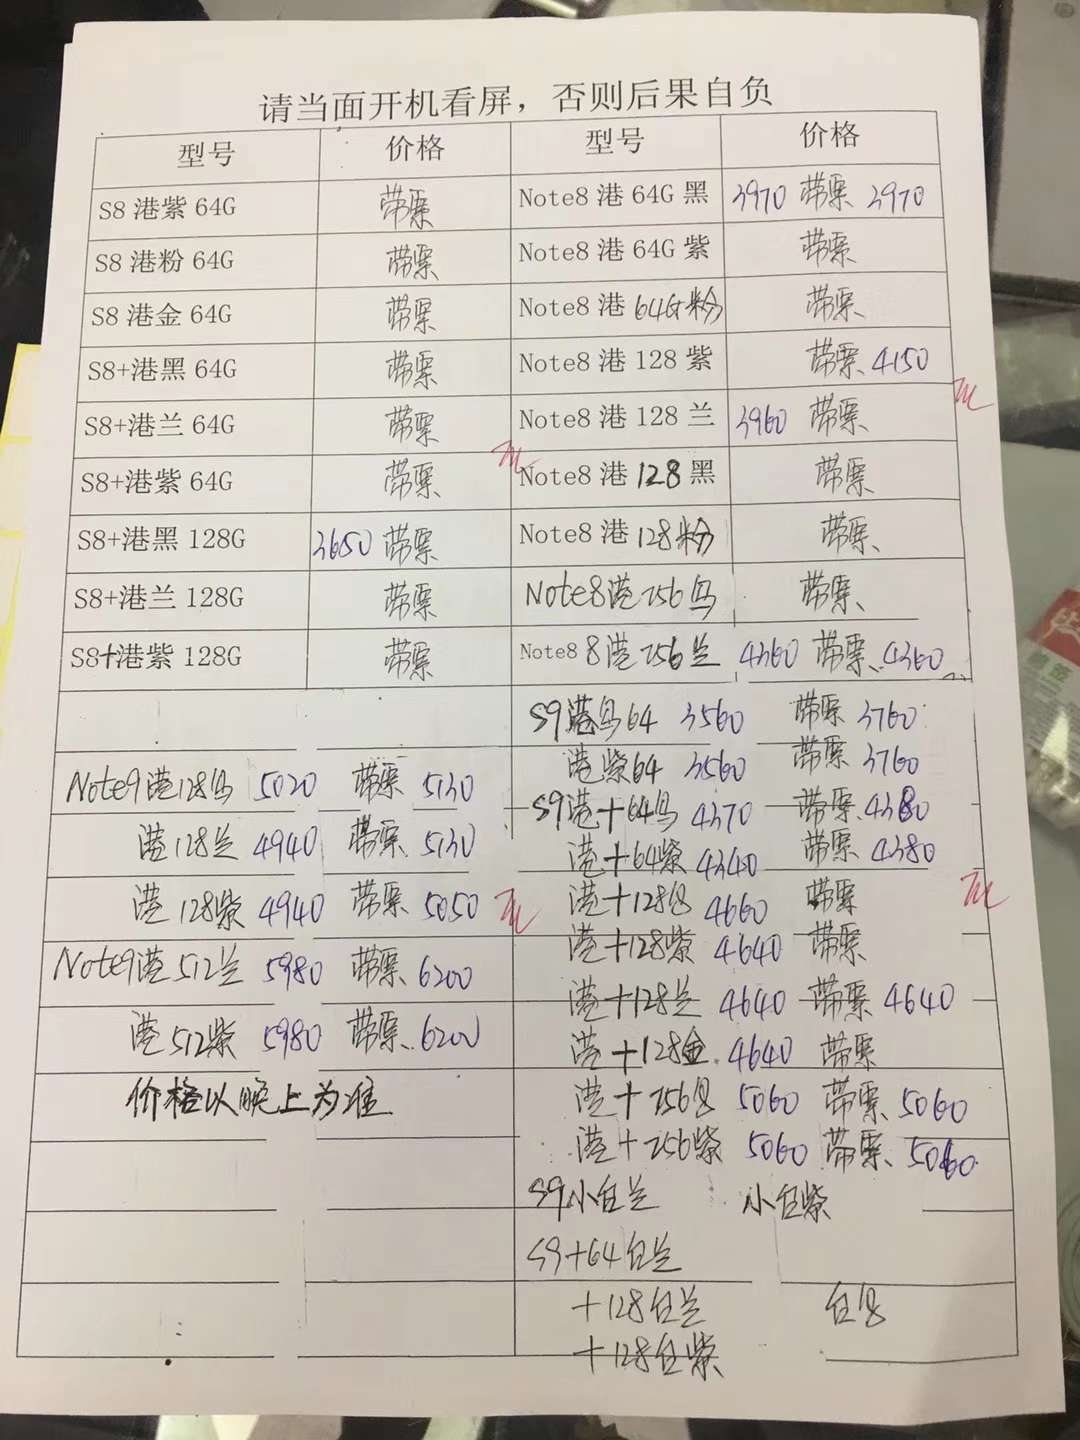 请当面开机看屏，否则后果自负
型号 价格 型号 价格
S8 港紫 64G 带票 Note8 港 64G 黑 3970 带票 3970
S8 港粉 64G 带票 Note8 港 64G 紫 带票
S8 港金 64G 带票 Note8 港 64G 粉 带票
S8+港黑 64G 带票 Note8 港 128 紫 带票 4150
S8+港兰 64G 带票 Note8 港 128 兰 3960 带票
S8+港紫 64G 带票 Note8 港 128 黑 带票
S8+港黑 128G 3650 带票 Note8 港 128 粉 带票
S8+港兰 128G 带票 Note8港256乌 带票
S8+港紫 128G 带票 Note8 8港256兰 4360 带票 4360
S9港乌64 3560 带票 3760
港紫64 3560 带票 3760
Note9港128乌 5020 带票 5130 S9港+64乌 4370 带票 4380
港128兰 4940 带票 5130 港+64紫 4340 带票 4380
港128紫 4940 带票 5050 港+128乌 4660 带票
港+128紫 4640 带票
Note9港512兰 5980 带票 6200 港+128兰 4640 带票 4640
港512紫 5980 带票 6200 港+128金 4640 带票
价格以晚上为准 港+256乌 5060 带票 5060
港+256紫 5060 带票 5060
S9小白兰 小白紫
S9+64白兰
+128白兰 白乌
+128白紫